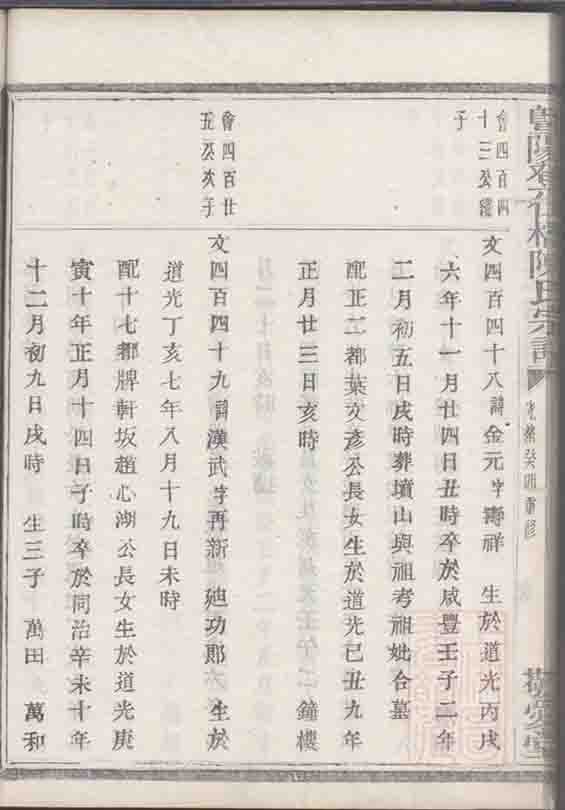 暨陽孝義橋陳氏宗譜
光緒癸卯重修
會四百四
十三公繼
子
文四百四十八諱金元字壽祥 生於道光丙戌
六年十一月廿四日丑時卒於咸豐壬子二年
二月初五日戌時葬墳山與祖考祖妣合墓
配正二都葉文彥公長女生於道光己丑九年
正月廿三日亥時
鐘樓
會四百廿
五公次子
文四百四十九諱漢武字再新 廸功郎 生於
道光丁亥七年八月十九日未時
配十七都牌軒坂趙心湖公長女生於道光庚
寅十年正月十四日子時卒於同治辛未十年
十二月初九日戌時 生三子 萬田 萬和